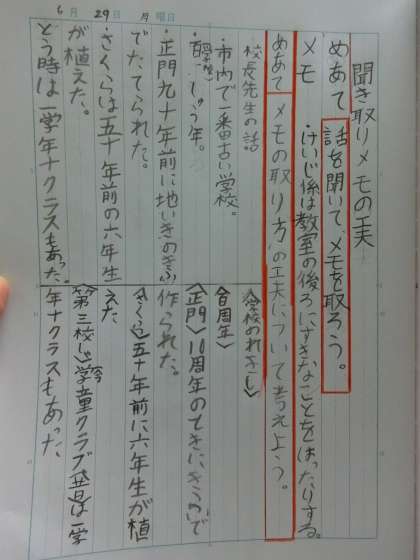 6月29日 月曜日
聞き取りメモの工夫
めあて 話を聞いて、メモを取ろう。
メモ ・けいじ係は教室の後ろにすきなことをはったりする。
めあて メモの取り方の工夫について考えよう。
校長先生の話
・市内で一番古い学校。
・百しゅう年。
・正門九十年前に地いきのきふ
でたてられた。
・さくらは五十年前の六年生
が植えた。
とう時は一学年十クラスもあった。
〈学校のれきし〉
〈百周年〉
〈正門〉10周年のときに、きふで
作られた。
〈さくら〉五十年前に六年生が植
えた
〈第三校しゃ〉学童クラブ 昔は一学
年十クラスもあった